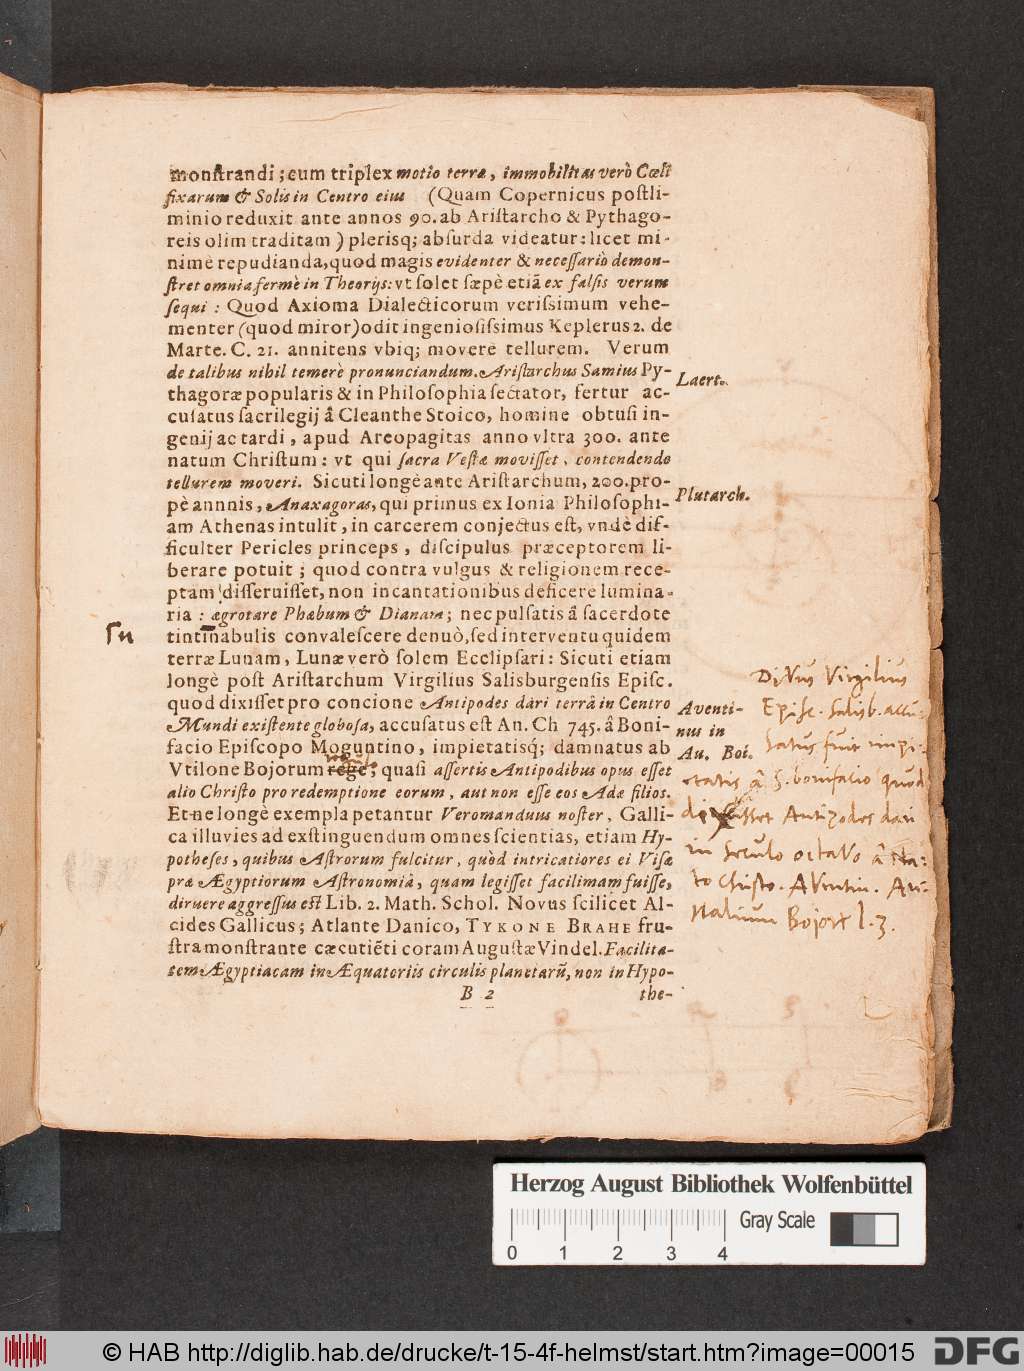 monſtrandi; cum triplex motio terræ, immobilitas verò Cœli
fixarum & Solis in Centro eius (Quam Copernicus poſtli-
minio reduxit ante annos 90. ab Ariſtarcho & Pythago-
reis olim traditam) plerisq; abſurda videatur: licet mi-
nimè repudianda, quod magis evidenter & neceſſariò demon-
ſtret omnia fermè in Theorijs: vt ſolet ſæpè etiã ex falſis verum
ſequi: Quod Axioma Dialecticorum veriſſimum vehe-
menter (quod miror) odit ingenioſiſsimus Keplerus 2. de
Marte. C. 21. annitens vbiq; movere tellurem. Verum
de talibus nihil temerè pronunciandum. Ariſtarchus Samius Py-
thagoræ popularis & in Philoſophia ſectator, fertur ac-
cuſatus ſacrilegij â Cleanthe Stoico, homine obtuſi in-
genij ac tardi, apud Areopagitas anno vltra 300. ante
natum Chriſtum: vt qui ſacra Veſtæ moviſſet, contendendo
tellurem moveri. Sicuti longè ante Ariſtarchum, 200. pro-
pè annnis, Anaxagoras, qui primus ex Ionia Philoſophi-
am Athenas intulit, in carcerem conjectus eſt, vndè dif-
ficulter Pericles princeps, diſcipulus præceptorem li-
berare potuit; quod contra vulgus & religionem rece-
ptam diſſeruiſſet, non incantationibus deficere lumina-
ria: ægrotare Phæbum & Dianam; nec pulſatis â ſacerdote
tintinabulis convaleſcere denuò, ſed interventu quidem
terræ Lunam, Lunæ verò ſolem Ecclipſari: Sicuti etiam
longè poſt Ariſtarchum Virgilius Salisburgenſis Epiſc.
quod dixiſſet pro concione Antipodes dari terrâ in Centro
Mundi exiſtente globoſa, accuſatus eſt An. Ch 745. â Boni-
facio Epiſcopo Moguntino, impietatisq́; damnatus ab
Vtilone Bojorum rege; quaſi aſſertis Antipodibus opus eſſet
alio Chriſto pro redemptione eorum, aut non eſſe eos Adæ filios.
Et ne longè exempla petantur Veromanduus noſter, Galli-
ca illuvies ad exſtinguendum omnes ſcientias, etiam Hy-
potheſes, quibus Aſtrorum fulcitur, quòd intricatiores ei Viſæ
præ Ægyptiorum Aſtronomiâ, quam legiſſet facilimam fuiſſe,
diruere aggreſſus eſt Lib. 2. Math. Schol. Novus ſcilicet Al-
cides Gallicus; Atlante Danico, TYKONE BRAHE fru-
ſtra monſtrante cæcutiẽti coram Auguſtæ Vindel. Facilita-
tem Ægyptiacam in Æquatoriis circulis planetarũ, non in Hypo-
B 2 the-
Laert.
Plutarch.
Aventi-
nus in
An. Boi.
Divus Virgilius
Epiſc. Salisb. accu-
ſatus fuit impi-
etatis â S. bonifacio quod
Antipodes dari
in seculo octavo â na-
to Christo. Aventin. An-
nalium Bojor l. 3.
Herzog August Bibliothek Wolfenbüttel
Gray Scale
0 1 2 3 4
© HAB http://diglib.hab.de/drucke/t-15-4f-helmst/start.htm?image=00015 DFG